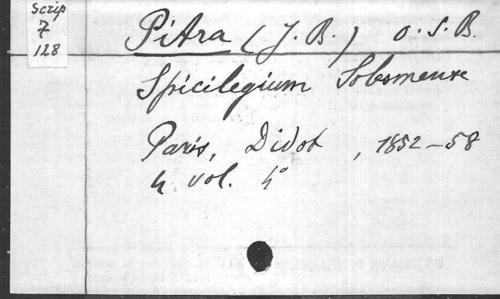 Scrip
7
128
Pitra (J. B.) O. S. B.
Spicilegium Solesmense
Paris, Didot, 1852-58
4 vol. 4°